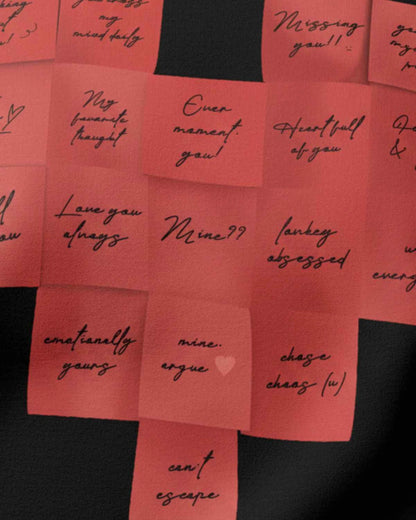 you cross
my
mind daily
Missing
you!!
my
My
favorite
thought
Ever
moment.
you!
Heartfull
of you
&
Love you
always
Mine??
lankey
obsessed
emotionally
yours
mine..
argue ♥
chose
chaos (u)
can't
escape